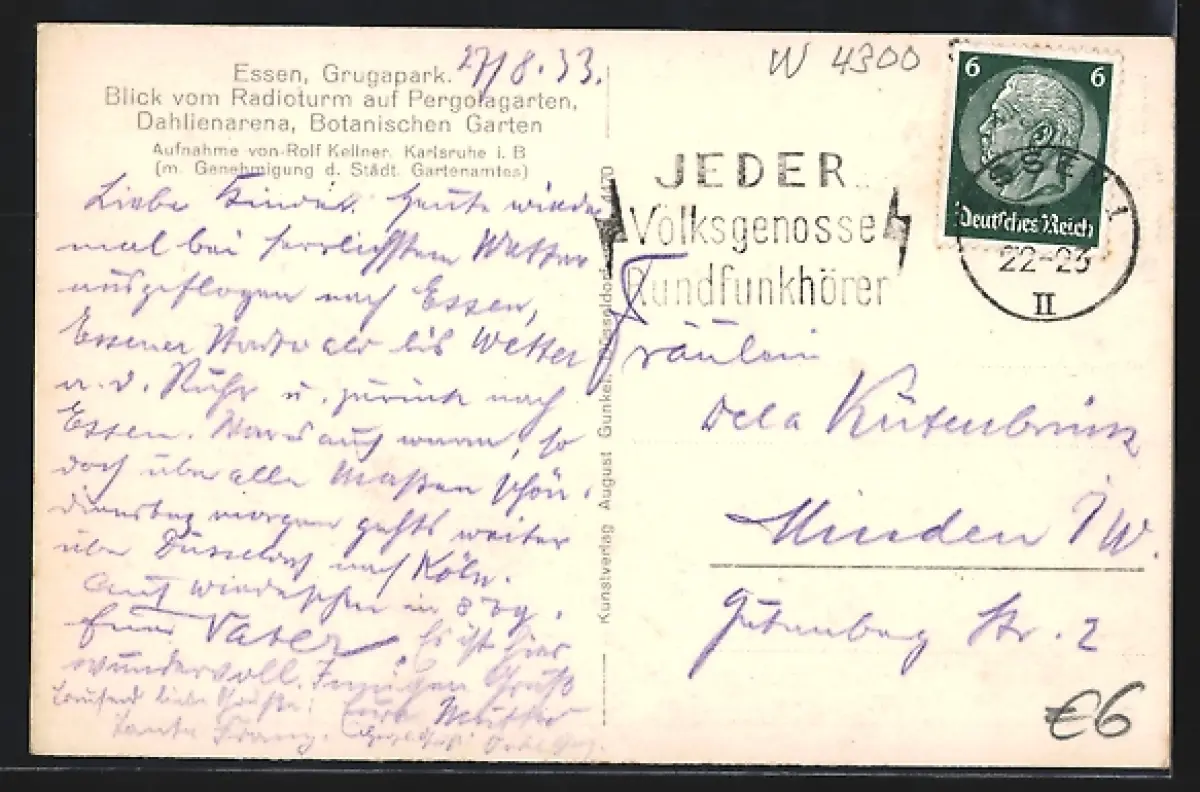 Essen, Grugapark.
27/8.33.
Blick vom Radioturm auf Pergolagarten,
Dahlienarena, Botanischen Garten
Aufnahme von Rolf Kellner, Karlsruhe i. B
(m. Genehmigung d. Städt. Gartenamtes)
Liebe Kinder. Heute wieder
mal bei herrlichstem Wetter
ausgeflogen nach Essen,
Essener bis Wetter
a. d. Ruhr u. zurück nach
Essen. War's auch warm, so
doch über alle Maßen schön.
Dienstag morgen gehts weiter
über Düsseldorf nach Köln.
Auf Wiedersehen in
Euer Vater. Es ist hier
wundervoll. Innigen Gruß
Tausend liebe Grüße: Eure Mutter
Tante
Kunstverlag August Gunkel, Düsseldorf 4470
W 4300
6 6
Deutsches Reich
ESSEN 1
22-23
II
JEDER
Volksgenosse
Rundfunkhörer
Fräulein
Dela
Minden i/W.
Gutenberg Str. 2
€6